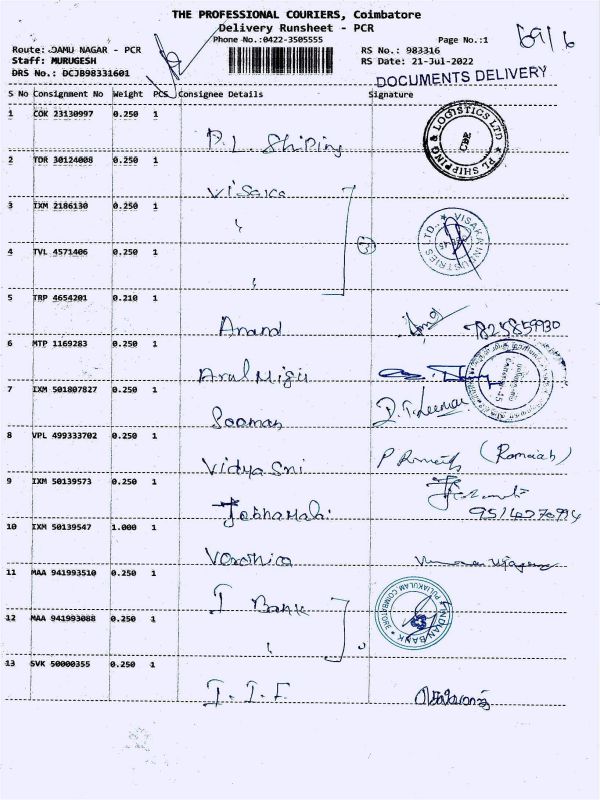 THE PROFESSIONAL COURIERS, Coimbatore
Delivery Runsheet - PCR
Phone No.:0422-3505555
Page No.:1
69/6
Route: DAMU NAGAR - PCR
RS No.: 983316
Staff: MURUGESH
RS Date: 21-Jul-2022
DRS No.: DCJB98331601
DOCUMENTS DELIVERY
S No Consignment No Weight PCS Consignee Details Signature
1 COK 23130997 0.250 1
P.L. Shiping
PL SHIPPING & LOGISTICS LTD
2 TOR 30124008 0.250 1
Visaka
3 IXM 2186130 0.250 1
"
VISAKA INDUSTRIES LTD.
4 TVL 4571406 0.250 1
"
5 TRP 4654201 0.210 1
Anand
6 MTP 1169283 0.250 1
7 IXM 501807827 0.250 1
8 VPL 499333702 0.250 1
Vidya Sri
P Ramaiah (Ramaiah)
9 IXM 50139573 0.250 1
10 IXM 50139547 1.000 1
Veronica
11 MAA 941993510 0.250 1
I Bank
INDIAN BANK * PULIAKULAM COIMBATORE
12 MAA 941993088 0.250 1
"
13 SVK 50000355 0.250 1
I.I.F.